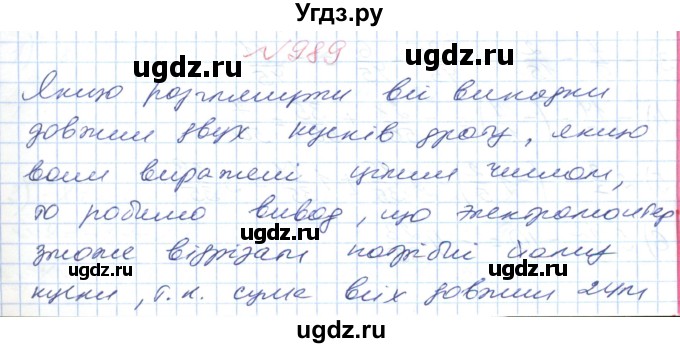 Угдз.ру
№989
ugdz.ru ugdz.ru
Якщо розглянути всі випадки
довжин двух кусків дроту, якщо
вони виражені цілим числом,
ugdz.ru ugdz.ru
то робимо вивод, що электромонтер
зможе відрізати потрібні йому
ugdz.ru ugdz.ru
куски, т.к. сума всіх довжин 24м
ugdz.ru ugdz.ru